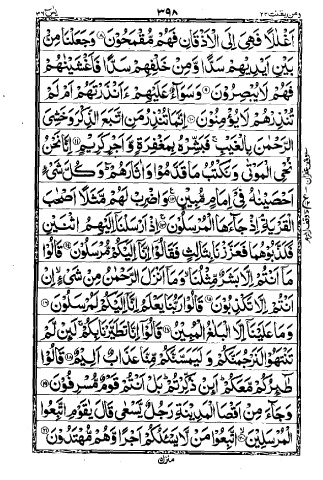 ومن يقنت ٢٢ ٣٩٨ يس ٣٦
اَغْلٰلًا فَهِیَ اِلَی الْاَذْقَانِ فَهُمْ مُّقْمَحُوْنَ ۝۸ وَجَعَلْنَا مِنْۢ
بَیْنِ اَیْدِیْهِمْ سَدًّا وَّمِنْ خَلْفِهِمْ سَدًّا فَاَغْشَیْنٰهُمْ
فَهُمْ لَا یُبْصِرُوْنَ ۝۹ وَسَوَآءٌ عَلَیْهِمْ ءَاَنْذَرْتَهُمْ اَمْ لَمْ
تُنْذِرْهُمْ لَا یُؤْمِنُوْنَ ۝۱۰ اِنَّمَا تُنْذِرُ مَنِ اتَّبَعَ الذِّكْرَ وَخَشِیَ
الرَّحْمٰنَ بِالْغَیْبِ ۚ فَبَشِّرْهُ بِمَغْفِرَةٍ وَّاَجْرٍ كَرِیْمٍ ۝۱۱ اِنَّا نَحْنُ
نُحْیِ الْمَوْتٰی وَنَكْتُبُ مَا قَدَّمُوْا وَاٰثَارَهُمْ ؕ وَكُلَّ شَیْءٍ
اَحْصَیْنٰهُ فِیْۤ اِمَامٍ مُّبِیْنٍ ۝۱۲ وَاضْرِبْ لَهُمْ مَّثَلًا اَصْحٰبَ
الْقَرْیَةِ ۘ اِذْ جَآءَهَا الْمُرْسَلُوْنَ ۝۱۳ اِذْ اَرْسَلْنَاۤ اِلَیْهِمُ اثْنَیْنِ
فَكَذَّبُوْهُمَا فَعَزَّزْنَا بِثَالِثٍ فَقَالُوْۤا اِنَّاۤ اِلَیْكُمْ مُّرْسَلُوْنَ ۝۱۴ قَالُوْا
مَاۤ اَنْتُمْ اِلَّا بَشَرٌ مِّثْلُنَا ۙ وَمَاۤ اَنْزَلَ الرَّحْمٰنُ مِنْ شَیْءٍ ۙ اِنْ
اَنْتُمْ اِلَّا تَكْذِبُوْنَ ۝۱۵ قَالُوْا رَبُّنَا یَعْلَمُ اِنَّاۤ اِلَیْكُمْ لَمُرْسَلُوْنَ ۝۱۶
وَمَا عَلَیْنَاۤ اِلَّا الْبَلٰغُ الْمُبِیْنُ ۝۱۷ قَالُوْۤا اِنَّا تَطَیَّرْنَا بِكُمْ ۚ لَئِنْ لَّمْ
تَنْتَهُوْا لَنَرْجُمَنَّكُمْ وَلَیَمَسَّنَّكُمْ مِّنَّا عَذَابٌ اَلِیْمٌ ۝۱۸ قَالُوْا
طَآئِرُكُمْ مَّعَكُمْ ؕ اَئِنْ ذُكِّرْتُمْ ؕ بَلْ اَنْتُمْ قَوْمٌ مُّسْرِفُوْنَ ۝۱۹
وَجَآءَ مِنْ اَقْصَا الْمَدِیْنَةِ رَجُلٌ یَّسْعٰی قَالَ یٰقَوْمِ اتَّبِعُوا
الْمُرْسَلِیْنَ ۝۲۰ اتَّبِعُوْا مَنْ لَّا یَسْـَٔلُكُمْ اَجْرًا وَّهُمْ مُّهْتَدُوْنَ ۝۲۱
منزل